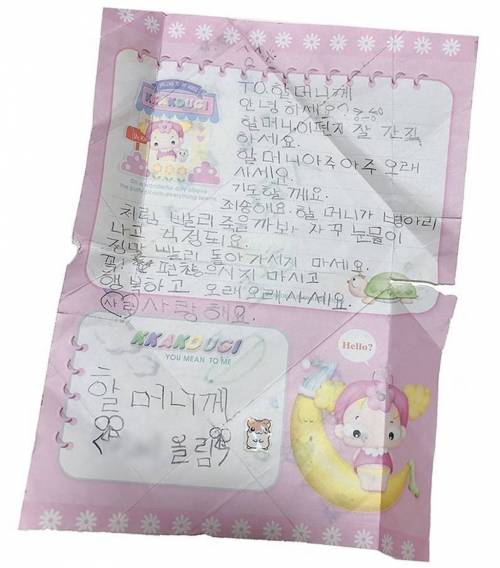 TO.할머니께
안녕하세요^^
할머니,이편지 잘 간직
하세요.
할머니아주아주 오래
사세요.
기도할 께요.
죄송해요. 할머니가 병아리
처럼 빨리 죽을까봐 자꾸 눈물이
나고 걱정되요.
정말 빨리 돌아가시지 마세요.
꼭! 편찮으시지 마시고
행복하고 오래오래사세요.
사랑 사랑해요.
KKAKDUGI
On a wonderful day above
KKAKDUGI
YOU MEAN TO ME
Hello?
할머니께
올림